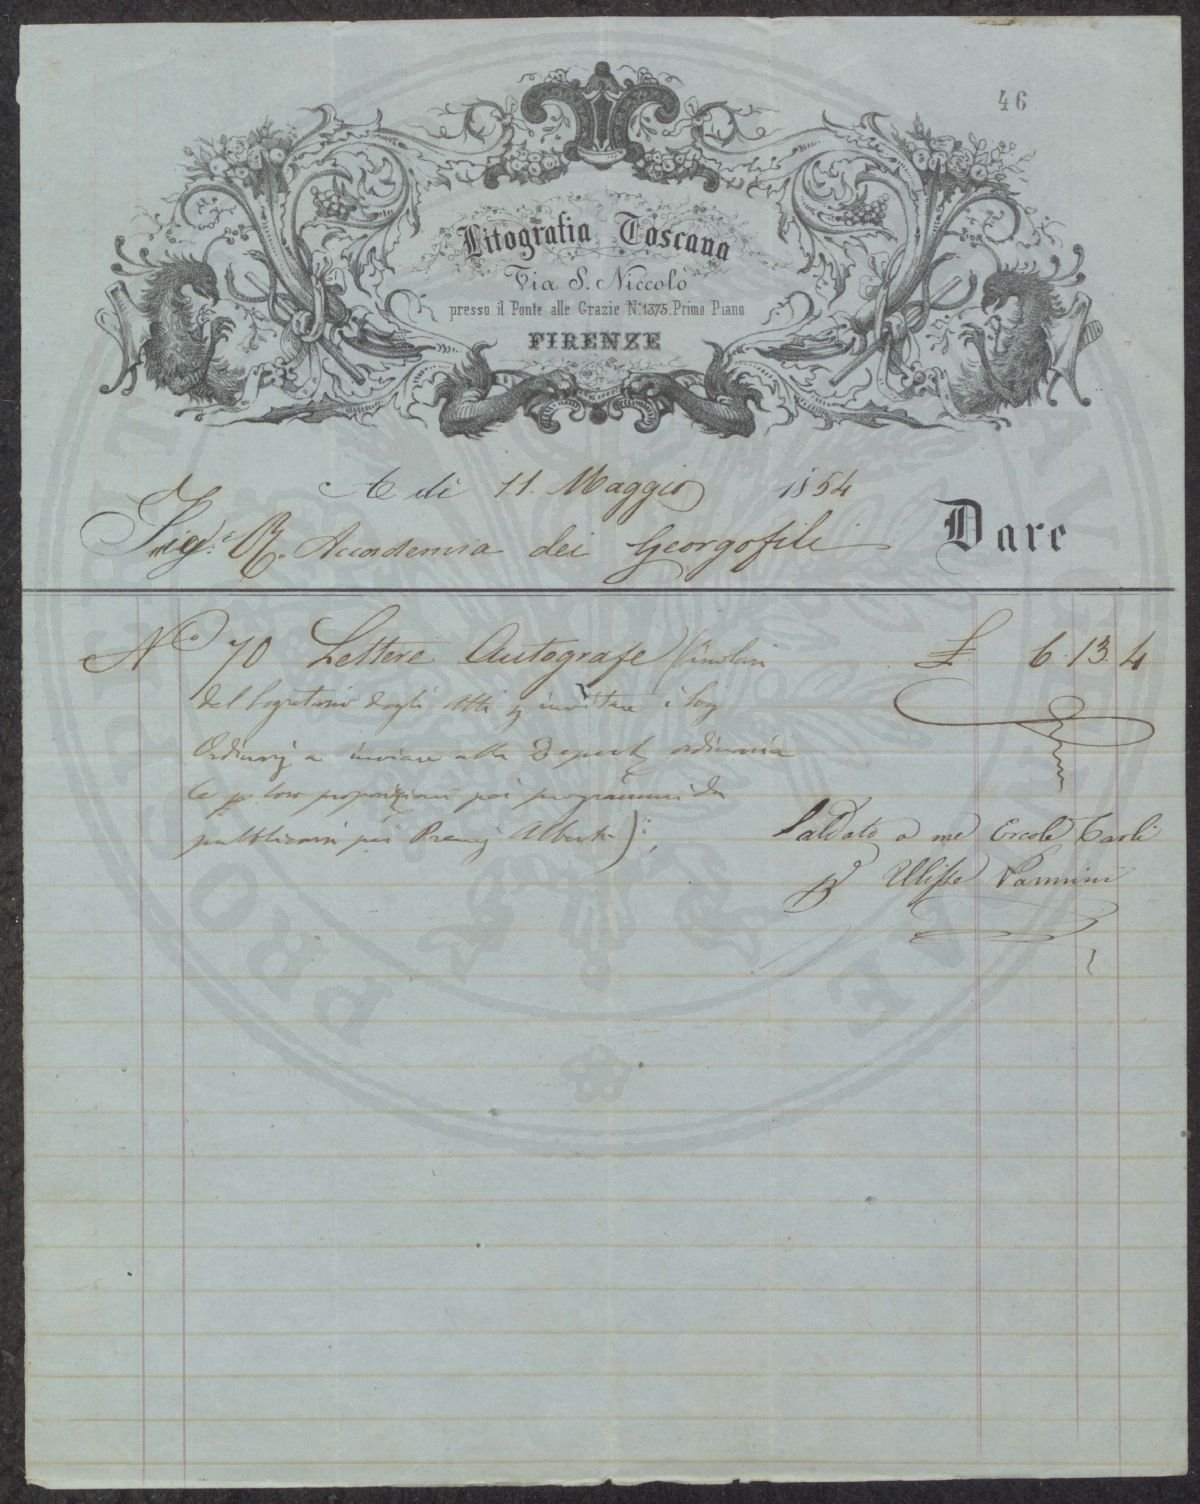 46
Litografia Toscana
Via S. Niccolò
presso il Ponte alle Grazie N.º 1375. Primo Piano
FIRENZE
A di 11. Maggio 1854
Sig.e R. Accademia dei Georgofili Dare
Nº 70 Lettere Autografe (Circolari £ 6.13.4
del Segretario degli Atti p invitare i Sog
Ordinarj a inviare alla Deput ordinaria
le loro proposizioni pei programmi da
pubblicarsi pei Premj Alberti);
Saldato a me Ercole Paoli
p Ulisse Vannini
PROSPERITATI AUGENDAE